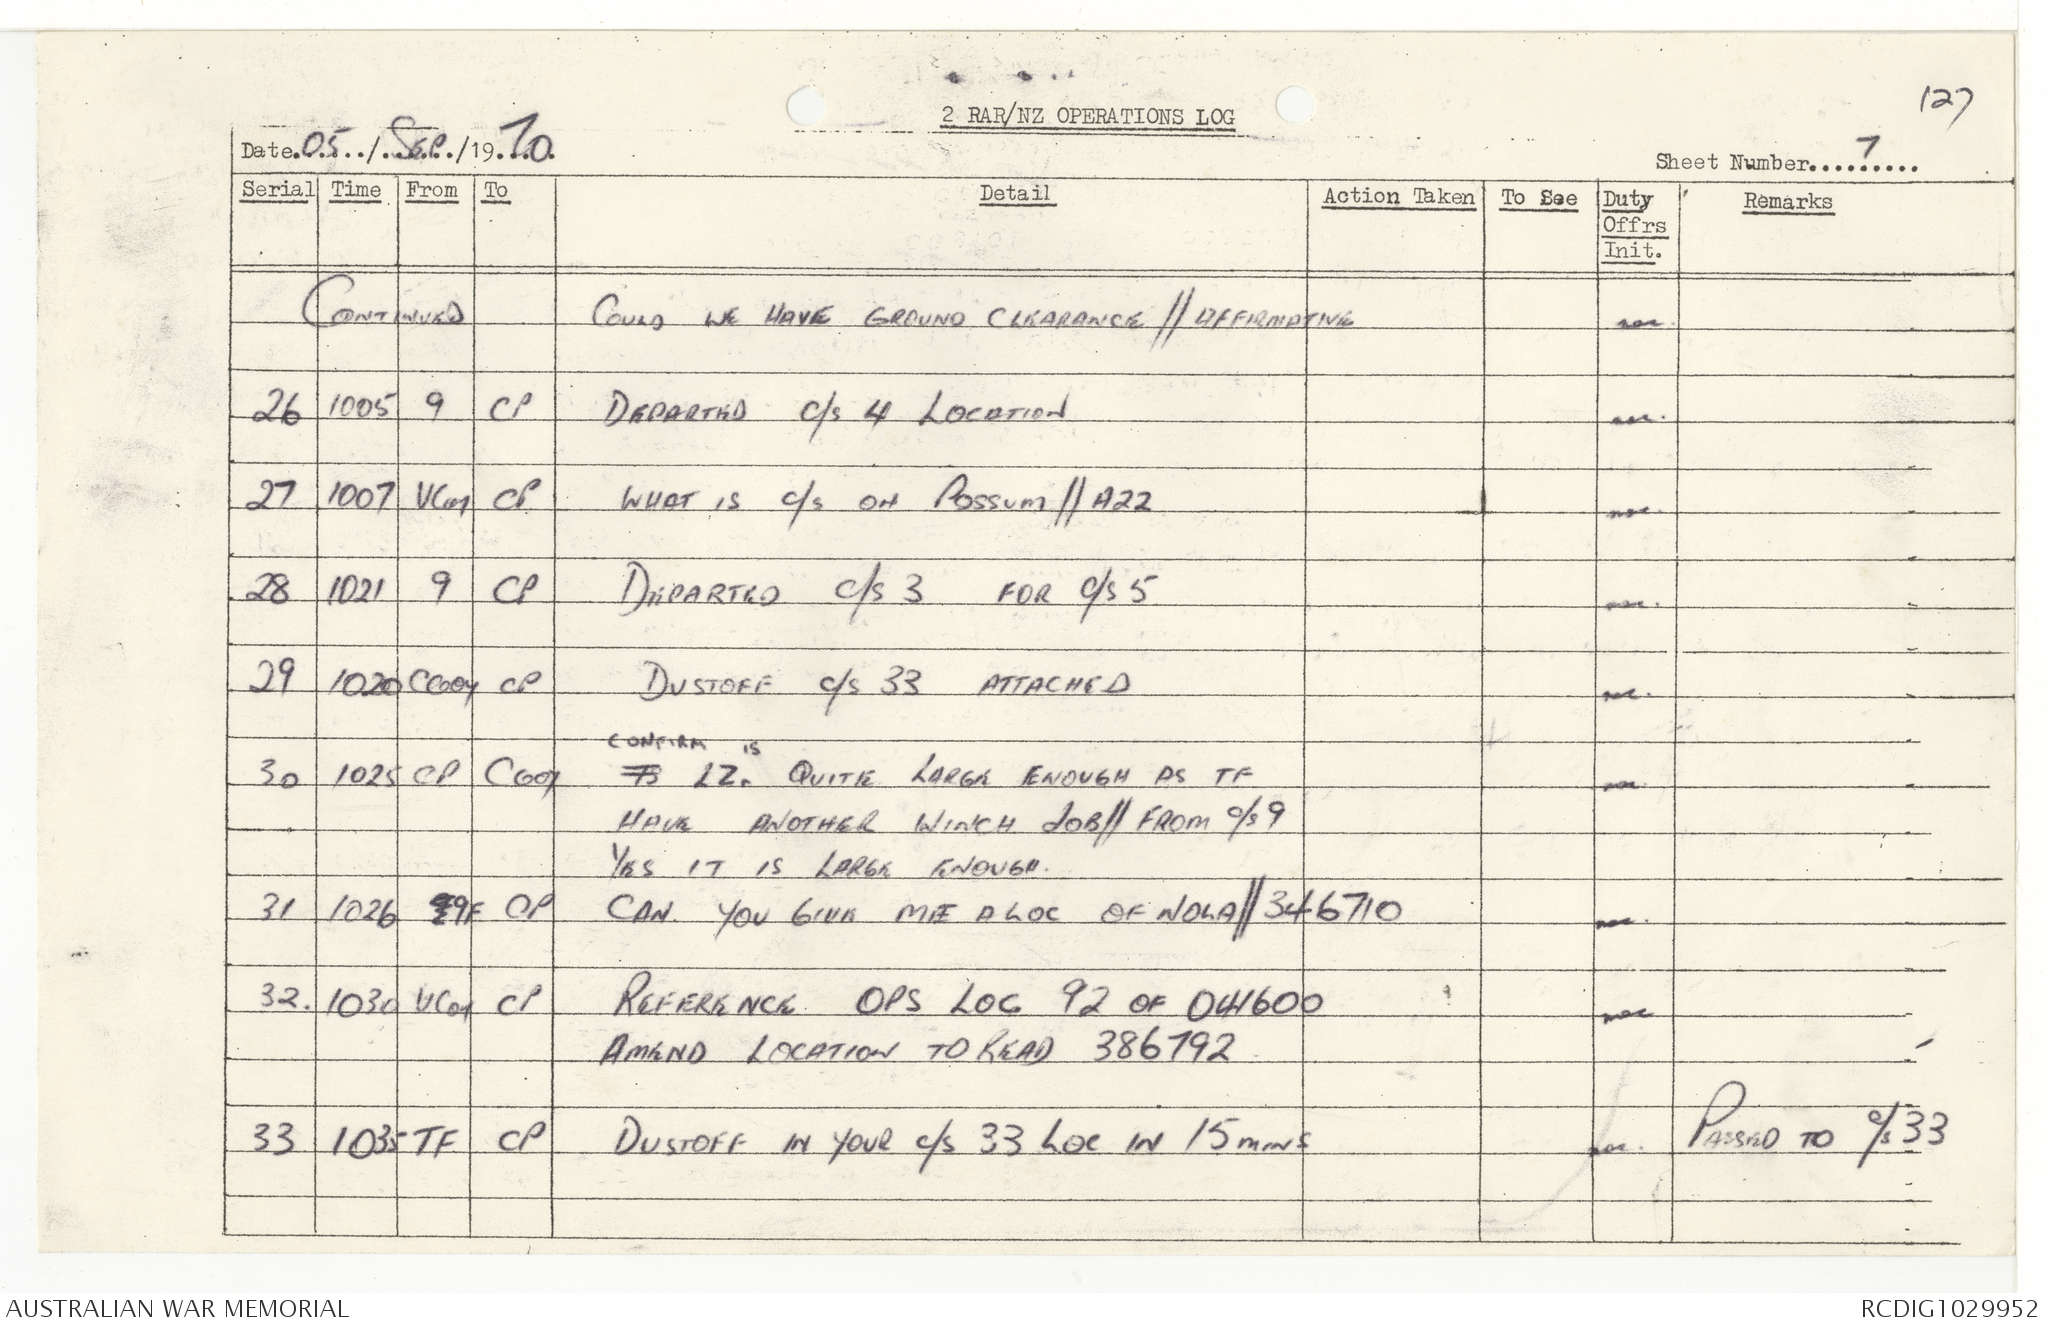 127
2 RAR/NZ OPERATIONS LOG
Date. 05 ../. Sep ./19. 70.
Sheet Number....7.....
Serial Time From To Detail Action Taken To See Duty Offrs Init. Remarks
CONTINUED COULD WE HAVE GROUND CLEARANCE // AFFIRMATIVE
26 1005 9 CP DEPARTED c/s 4 LOCATION
27 1007 VCoy CP WHAT IS c/s ON POSSUM // A22
28 1021 9 CP DEPARTED c/s 3 FOR c/s 5
29 1020 CCoy CP DUSTOFF c/s 33 ATTACHED
CONFIRM IS
30 1025 CP CCoy LZ. QUITE LARGE ENOUGH AS TF
HAVE ANOTHER WINCH JOB // FROM c/s 9
YES IT IS LARGE ENOUGH.
31 1026 99F CP CAN YOU GIVE ME A LOC OF NOLA // 346710
32. 1030 VCoy CP REFERENCE OPS LOG 92 OF 041600
AMEND LOCATION TO READ 386792
33 1035 TF CP DUSTOFF IN YOUR c/s 33 LOC IN 15 MINS PASSED TO c/s 33
AUSTRALIAN WAR MEMORIAL RCDIG1029952